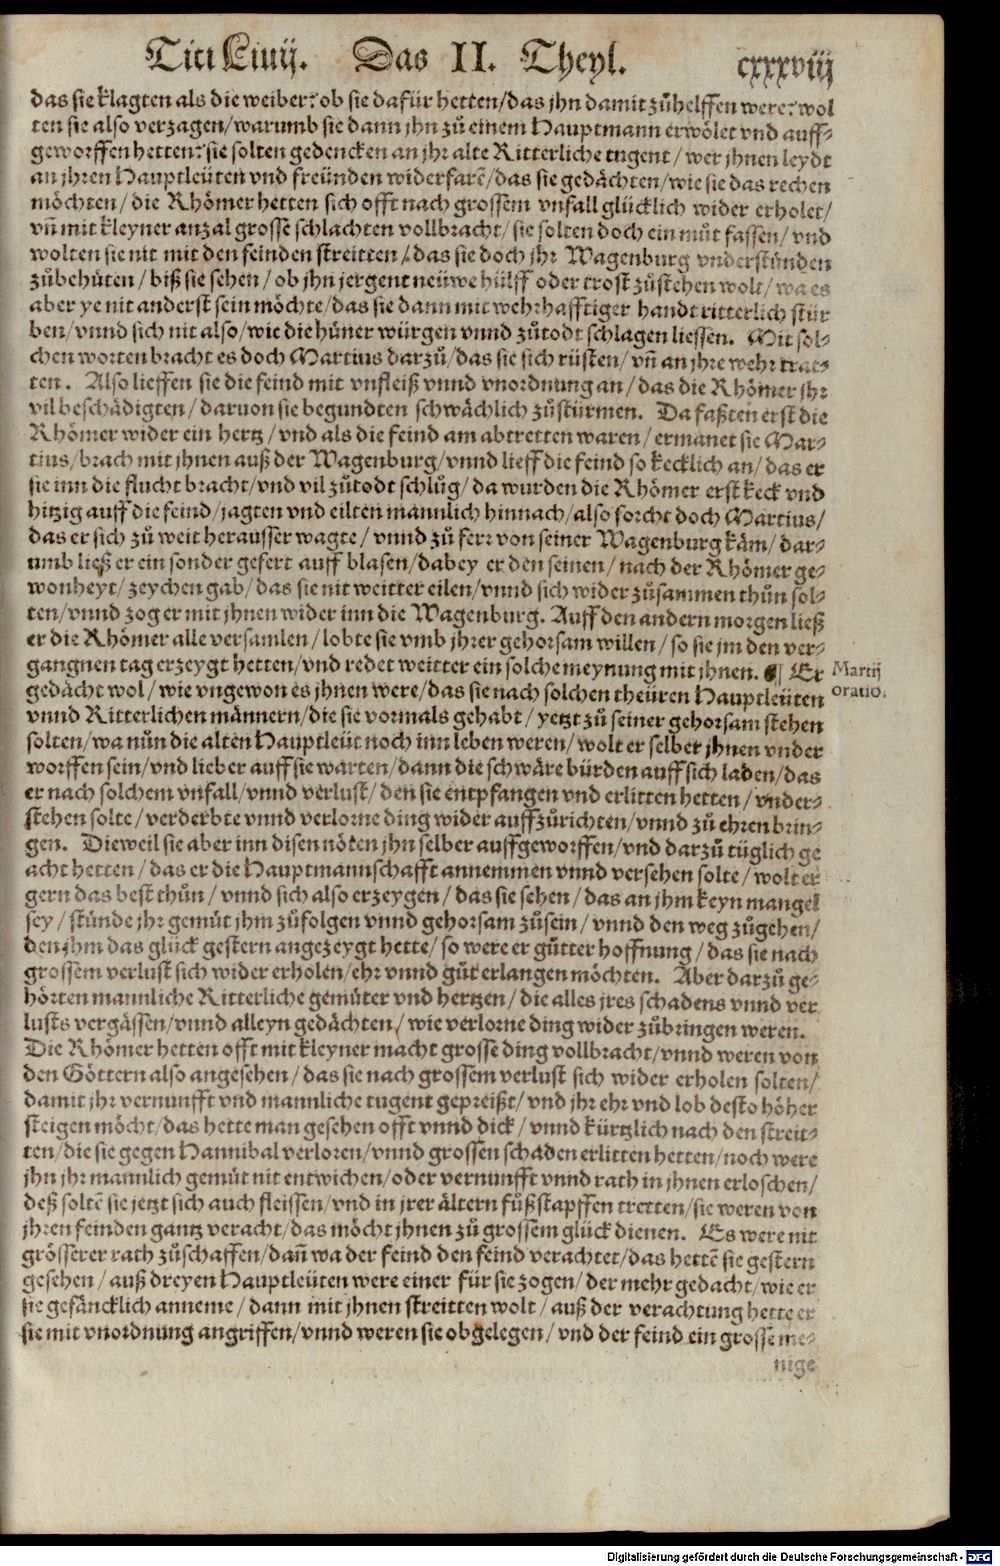 Titi Liuij. Das II. Theyl. cxxxviij
das sie klagten als die weiber: ob sie dafür hetten/das jhn damit zůhelffen were: wol
ten sie also verzagen/warumb sie dann jhn zů einem Hauptmann erwölet vnd auff-
geworffen hetten: sie solten gedencken an jhr alte Ritterliche tugent/wer jhnen leydt
an jhren Hauptleüten vnd freünden widerfarē/das sie gedächten/wie sie das rechen
möchten/die Rhömer hetten sich offt nach grossem vnfall glücklich wider erholet/
vn̄ mit kleyner anzal grosse schlachten vollbracht/sie solten doch ein můt fassen/vnd
wolten sie nit mit den feinden streitten/das sie doch jhr Wagenburg vnderstünden
zůbehüten/biß sie sehen/ob jhn jergent neüwe hülff oder trost zůstehen wolt/wa es
aber ye nit anderst sein möchte/das sie dann mit wehrhafftiger handt ritterlich stür
ben/vnnd sich nit also/wie die hüner würgen vnnd zůtodt schlagen liessen. Mit sol-
chen worten bracht es doch Martius darzů/das sie sich rüsten/vn̄ an jhre wehr trat-
ten. Also lieffen sie die feind mit vnfleiß vnnd vnordnung an/das die Rhömer jhr
vil beschädigten/daruon sie begundten schwächlich zůstürmen. Da faßten erst die
Rhömer wider ein hertz/vnd als die feind am abtretten waren/ermanet sie Mar-
tius/brach mit jhnen auß der Wagenburg/vnnd lieff die feind so kecklich an/das er
sie inn die flucht bracht/vnd vil zůtodt schlůg/da wurden die Rhömer erst keck vnd
hitzig auff die feind/jagten vnd eilten mannlich hinnach/also forcht doch Martius/
das er sich zů weit herausser wagte/vnnd zů ferr von seiner Wagenburg käm/dar-
umb ließ er ein sonder gefert auff blasen/dabey er den seinen/nach der Rhömer ge-
wonheyt/zeychen gab/das sie nit weitter eilen/vnnd sich wider zůsammen thůn sol-
ten/vnnd zog er mit jhnen wider inn die Wagenburg. Auff den andern morgen ließ
er die Rhömer alle versamlen/lobte sie vmb jhrer gehorsam willen/so sie jm den ver-
gangnen tag erzeygt hetten/vnd redet weitter ein solche meynung mit jhnen. ¶ Er
Martij
oratio.
gedächt wol/wie vngewon es jhnen were/das sie nach solchen theüren Hauptleüten
vnnd Ritterlichen männern/die sie vormals gehabt/yetzt zů seiner gehorsam stehen
solten/wa nůn die alten Hauptleüt noch inn leben weren/wolt er selber jhnen vnder
worffen sein/vnd lieber auff sie warten/dann die schwäre bürden auff sich laden/das
er nach solchem vnfall/vnnd verlust/den sie entpfangen vnd erlitten hetten/vnder-
stehen solte/verderbte vnnd verlorne ding wider auffzůrichten/vnnd zů ehren brin-
gen. Dieweil sie aber inn disen nöten jhn selber auffgeworffen/vnd darzů tüglich ge
acht hetten/das er die Hauptmannschafft annemmen vnnd versehen solte/wolt er
gern das best thůn/vnnd sich also erzeygen/das sie sehen/das an jhm keyn mangel
sey/stünde jhr gemüt jhm zůfolgen vnnd gehorsam zůsein/vnnd den weg zůgehen/
den jhm das glück gestern angezeygt hette/so were er gůtter hoffnung/das sie nach
grossem verlust sich wider erholen/ehr vnnd gůt erlangen möchten. Aber darzů ge-
hörten mannliche Ritterliche gemüter vnd hertzen/die alles jres schadens vnnd ver
lusts vergässen/vnnd alleyn gedächten/wie verlorne ding wider zůbringen weren.
Die Rhömer hetten offt mit kleyner macht grosse ding vollbracht/vnnd weren von
den Göttern also angesehen/das sie nach grossem verlust sich wider erholen solten/
damit jhr vernunfft vnd mannliche tugent gepreißt/vnd jhr ehr vnd lob desto höher
steigen möcht/das hette man gesehen offt vnnd dick/vnnd kürtzlich nach den streit-
ten/die sie gegen Hannibal verloren/vnnd grossen schaden erlitten hetten/noch were
jhn jhr mannlich gemüt nit entwichen/oder vernunfft vnnd rath in jhnen erloschen/
deß soltē sie jetzt sich auch fleissen/vnd in jrer ältern fůßstapffen tretten/sie weren von
jhren feinden gantz veracht/das möcht jhnen zů grossem glück dienen. Es were nit
grösserer rath zůschaffen/dan̄ wa der feind den feind verachtet/das hettē sie gestern
gesehen/auß dreyen Hauptleüten were einer für sie zogen/der mehr gedacht/wie er
sie gefäncklich anneme/dann mit jhnen streitten wolt/auß der verachtung hette er
sie mit vnordnung angriffen/vnnd weren sie obgelegen/vnd der feind ein grosse me-
nige
Digitalisierung gefördert durch die Deutsche Forschungsgemeinschaft - DFG